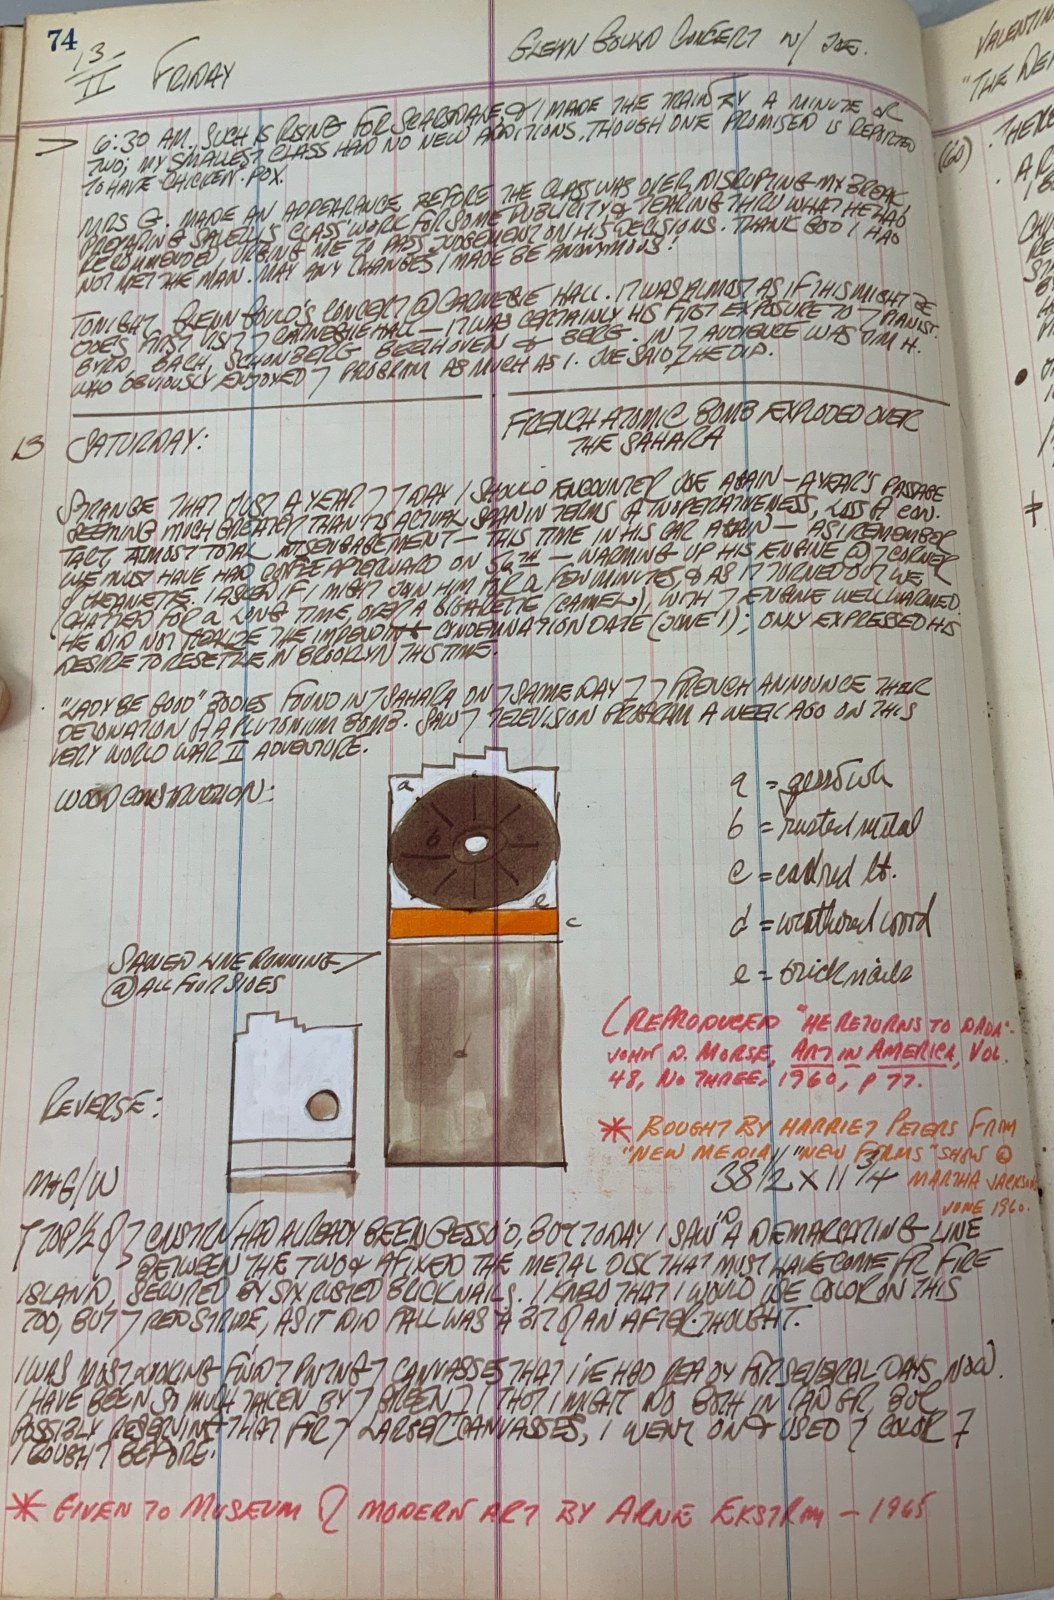 74
13
II FRIDAY GLENN GOULD CONCERT W/ JOE.
6:30 AM. SUCH IS RISING FOR SCARSDALE & I MADE THE TRAIN BY A MINUTE OR
TWO; MY SMALLEST CLASS HAD NO NEW ADDITIONS, THOUGH ONE PROMISED IS REPORTED
TO HAVE CHICKEN-POX.
MRS G. MADE AN APPEARANCE BEFORE THE CLASS WAS OVER, DISRUPTING MY BREAK,
PREPARING CLASS WORK FOR SOME PUBLICITY & TEARING THRU WHAT HE HAD
RECOMMENDED, URGING ME TO PASS JUDGEMENT ON HIS DECISIONS. THANK GOD I HAD
NOT MET THE MAN. MAY ANY CHANGES I MADE BE ANONYMOUS!
TONIGHT GLENN GOULD'S CONCERT @ CARNEGIE HALL. IT WAS ALMOST AS IF THIS MIGHT BE
JOE'S FIRST VISIT 7 CARNEGIE HALL — IT WAS CERTAINLY HIS FIRST EXPOSURE TO 7 PIANIST.
BYRD, BACH, SCHONBERG, BEETHOVEN & BERG. IN 7 AUDIENCE WAS JIM H.
WHO OBVIOUSLY ENJOYED 7 PROGRAM AS MUCH AS I. JOE SAID HE DID.
13 SATURDAY: FRENCH ATOMIC BOMB EXPLODED OVER
THE SAHARA
STRANGE THAT JUST A YEAR 7 7 DAY I SHOULD ENCOUNTER JOE AGAIN — A YEAR'S PASSAGE
SEEMING MUCH GREATER THAN ITS ACTUAL SPAN IN TERMS OF INOPERATIVENESS, LOSS OF CON-
TACT, ALMOST TOTAL DISENGAGEMENT — THIS TIME IN HIS CAR AGAIN — AS I REMEMBER
WE MUST HAVE HAD COFFEE AFTERWARD ON 56TH — WARMING UP HIS ENGINE @ 7 CORNER
OF JEANETTE. I ASKED IF I MIGHT JOIN HIM FOR A FEW MINUTES, & AS IT TURNED OUT WE
CHATTED FOR A LONG TIME, OVER A CIGARETTE (CAMEL), WITH 7 ENGINE WELL WARMED.
HE DID NOT REALIZE THE IMPENDING CONDEMNATION DATE (JUNE 1); ONLY EXPRESSED HIS
DESIRE TO RESETTLE IN BROOKLYN THIS TIME.
"LADY BE GOOD" BODIES FOUND IN 7 SAHARA ON 7 SAME DAY 7 7 FRENCH ANNOUNCE THEIR
DETONATION OF A PLUTONIUM BOMB. SAW 7 TELEVISION PROGRAM A WEEK AGO ON THIS
VERY WORLD WAR II ADVENTURE.
WOOD CONSTRUCTION:
a
b
e
c
d
a = gesso wh
b = rusted metal
c = cad red lt.
d = weathered wood
e = brick nails
SAWED LINE RUNNING
@ ALL FOUR SIDES
(REPRODUCED "HE RETURNS TO DADA"-
JOHN D. MORSE, ART IN AMERICA, VOL.
48, NO THREE, 1960, P 77.
REVERSE:
* BOUGHT BY HARRIET PETERS FROM
"NEW MEDIA" "NEW FORMS" SHOW @
38 1/2 X 11 3/4 MARTHA JACKSON
JUNE 1960.
M+G/W
7 TOP 1/2 OF 7 CNSTRN HAD ALREADY BEEN GESSO'D, BUT TODAY I SAW'D A DEMARCATING LINE
BETWEEN THE TWO & AFIXED THE METAL DISC THAT MUST HAVE COME FR FIRE
ISLAND, SECURED BY SIX RUSTED BRICK NAILS. I KNEW THAT I WOULD USE COLOR ON THIS
TOO, BUT 7 RED STRIDE, AS IT DID FALL WAS A BIT OF AN AFTER-THOUGHT.
I WAS MOST 7 CANVASSES THAT I'VE HAD READY FOR SEVERAL DAYS NOW.
I HAVE BEEN SO MUCH TAKEN BY 7 GREEN I MIGHT DO BOTH IN BUT
POSSIBLY RESERVING THAT FOR 7 LARGER CANVASSES, I WENT ON & USED 7 COLOR 7
THOUGHT BEFORE.
* GIVEN TO MUSEUM OF MODERN ART BY ARNE EKSTROM — 1965
VALENTIN
"THE
(60)